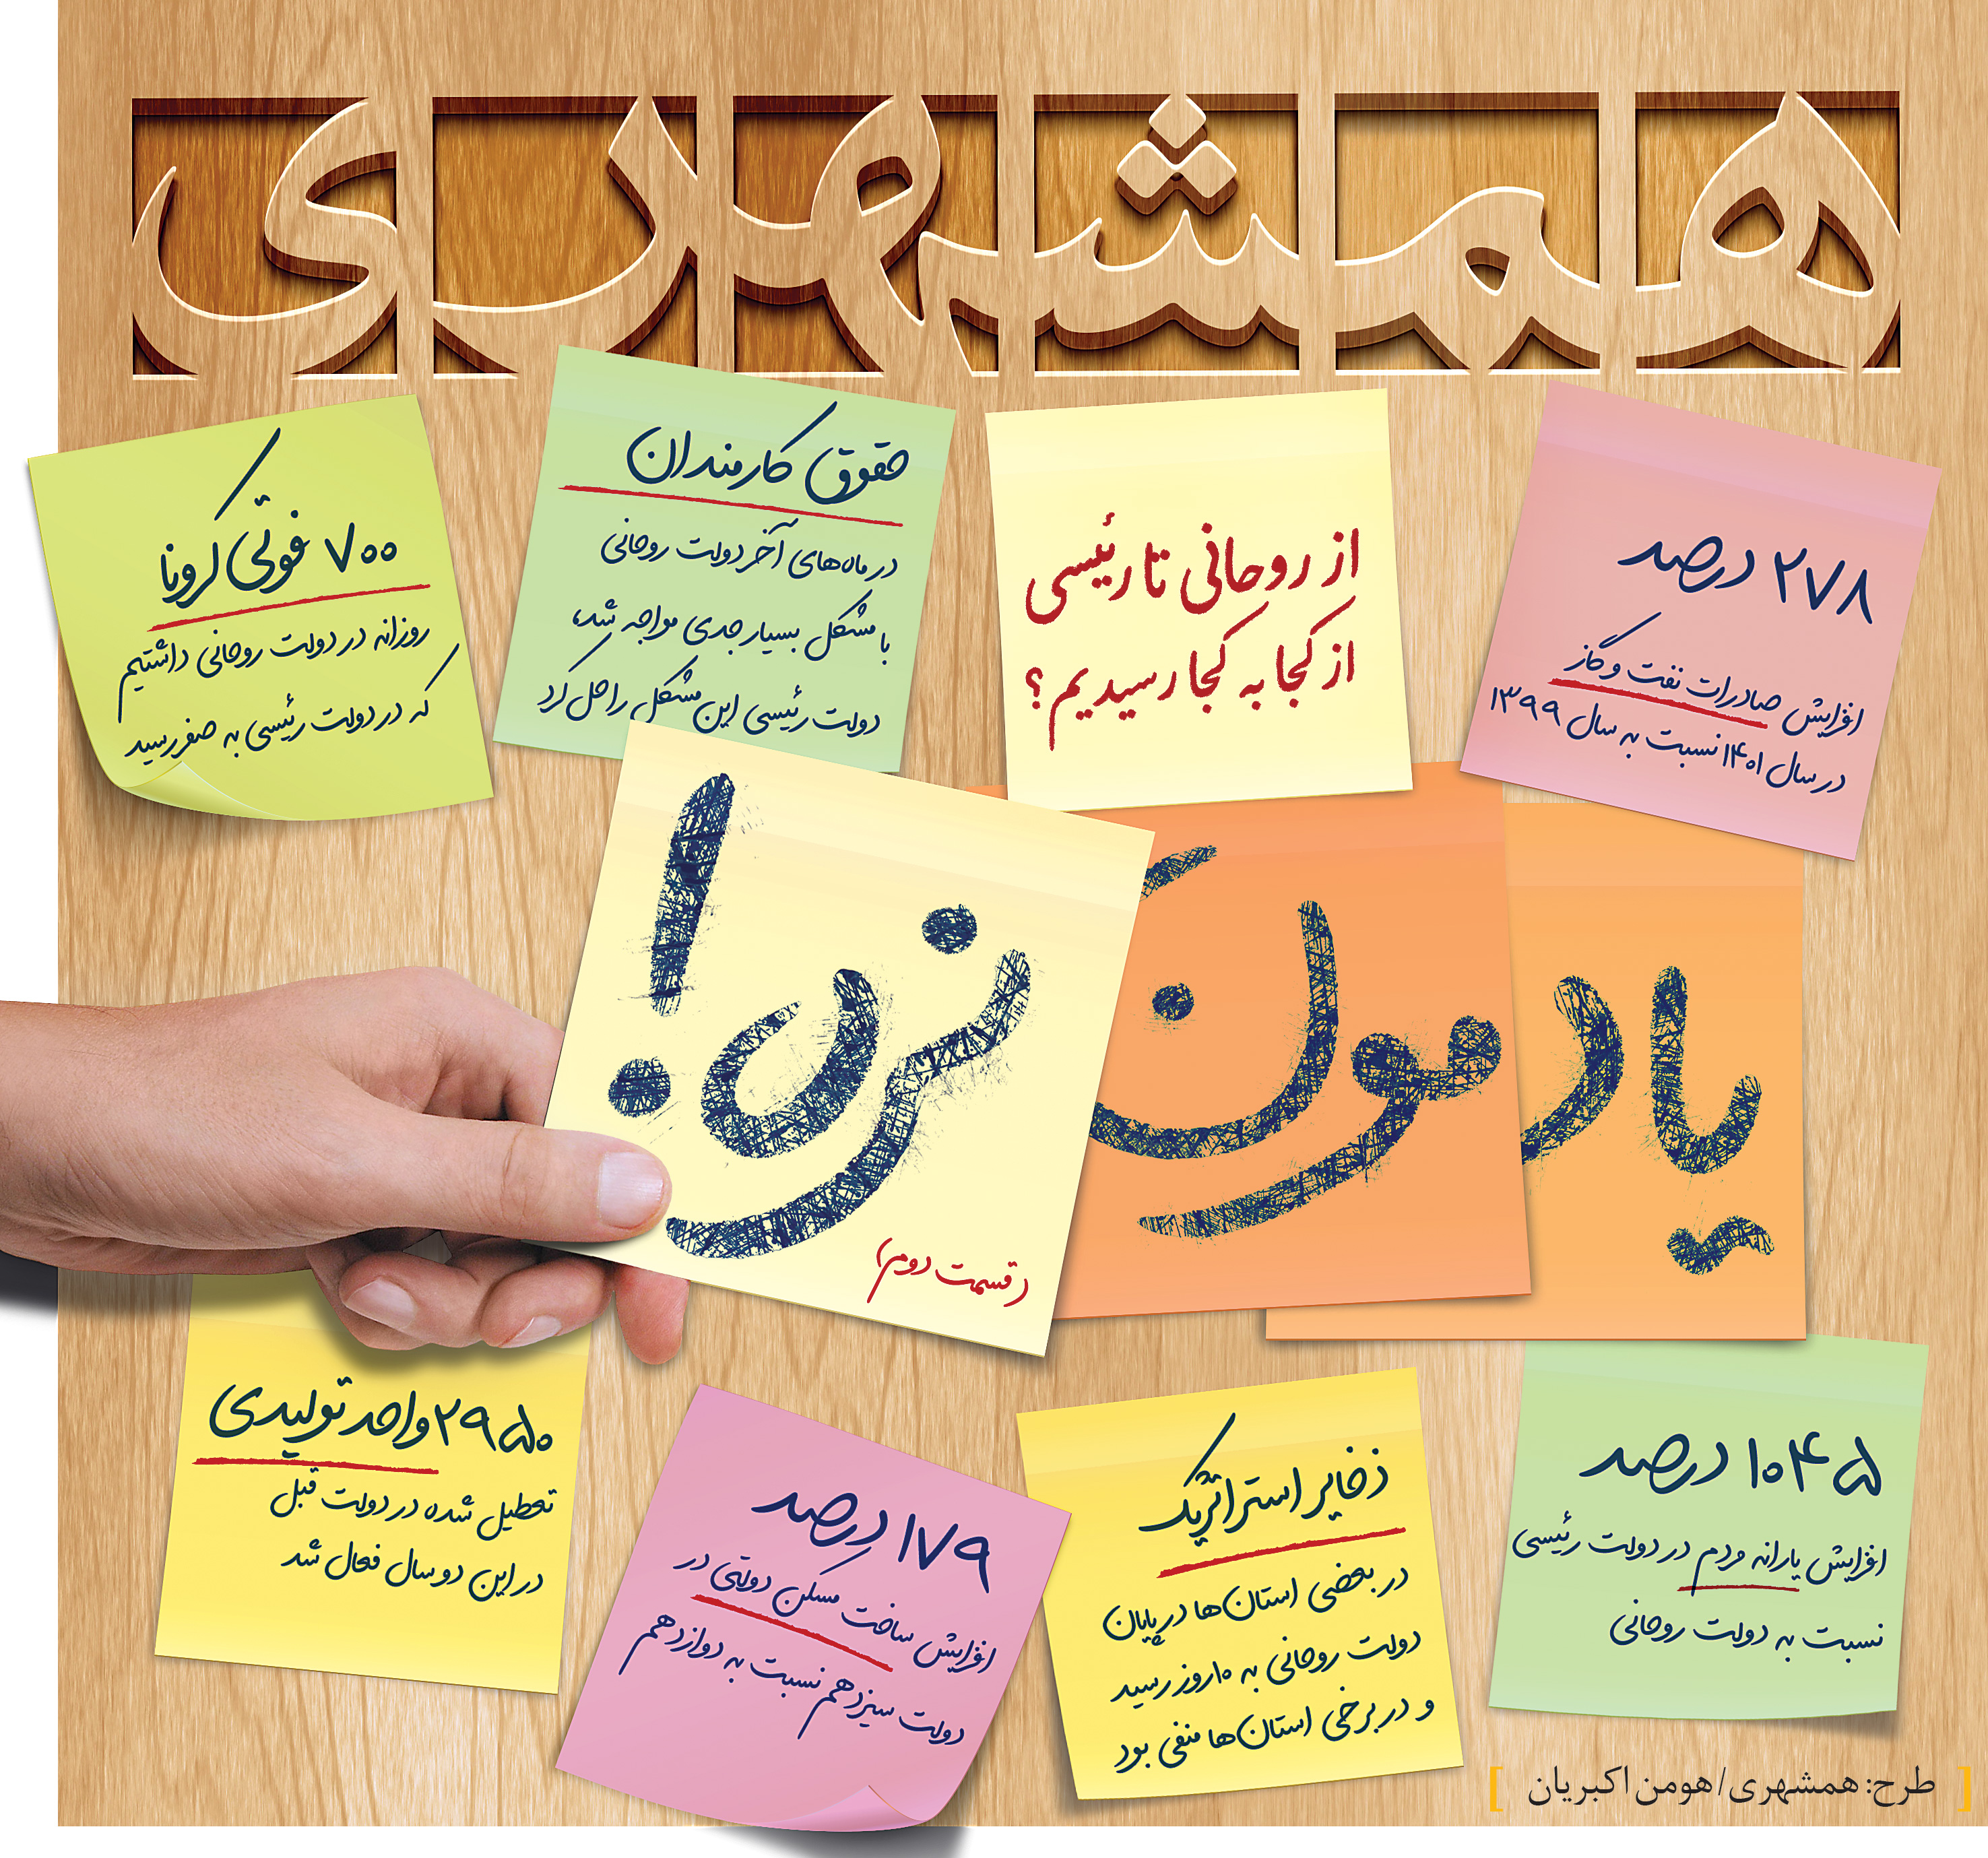 همشهری
۲۷۸ درصد
افزایش صادرات نفت و گاز
در سال ۱۴۰۱ نسبت به سال ۱۳۹۹
از روحانی تا رئیسی
از کجا به کجا رسیدیم؟
حقوق کارمندان
در ماه‌های آخر دولت روحانی
با مشکل بسیار جدی مواجه شد،
دولت رئیسی این مشکل را حل کرد
۷۰۰ فوتی کرونا
روزانه در دولت روحانی داشتیم
که در دولت رئیسی به صفر رسید
یادمون نزن!
(قسمت دوم)
۱۰۴۵ درصد
افزایش یارانه مردم در دولت رئیسی
نسبت به دولت روحانی
ذخایر استراتژیک
در بعضی استان‌ها در پایان
دولت روحانی به ۱۰ روز رسید
و در برخی استان‌ها منفی بود
۱۷۹ درصد
افزایش ساخت مسکن دولتی در
دولت سیزدهم نسبت به دوازدهم
۲۹۵۰ واحد تولیدی
تعطیل شده در دولت قبل
در این دو سال فعال شد
[ طرح: همشهری/ هومن اکبریان ]